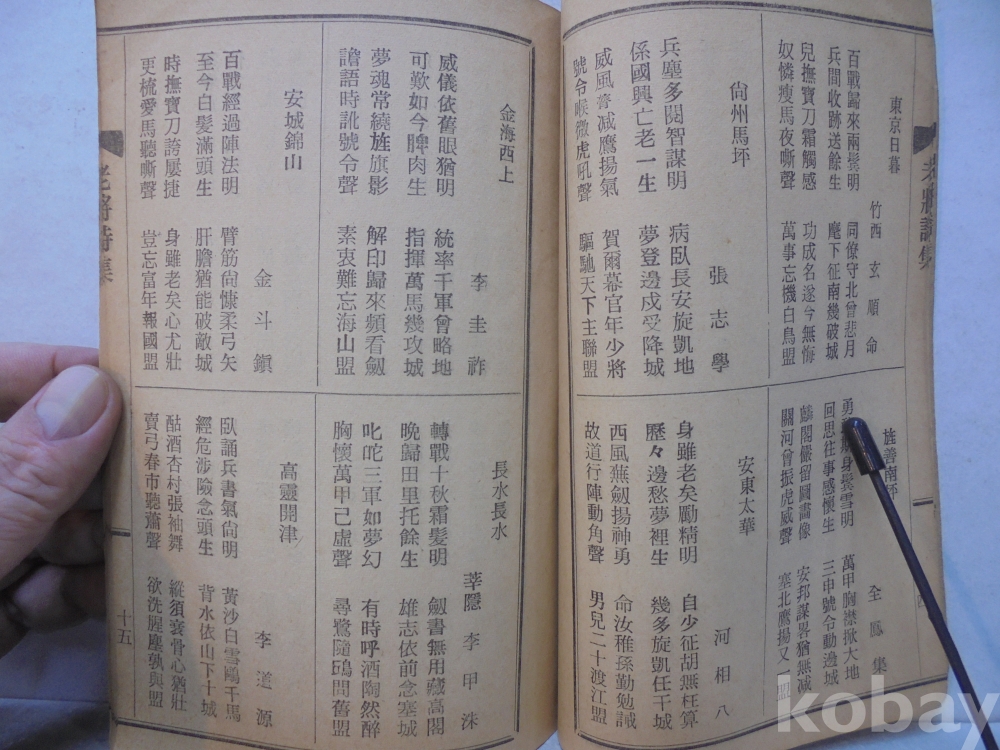 東京日暮　竹西　玄順命
百戰歸來兩鬂明　同僚守北曾悲月
兵間收跡送餘生　麾下征南幾破城
兒撫寶刀霜觸感　功成名遂今無悔
奴憐瘦馬夜嘶聲　萬事忘機白鳥盟
尙州馬坪　張志學
兵塵多閱智謀明　病臥長安旋凱地
係國興亡老一生　夢登邊戍受降城
威風普减鷹揚氣　賀爾幕官年少將
號令喉微虎吼聲　驅馳天下主聯盟
旌善南坪　全鳳集
身鬂雪明　萬甲胸襟掀大地
回思往事感懷生　三申號令動邊城
麟閣儼留圖畵像　安邦謀畧猶無减
關河曾振虎威聲　塞北鷹揚又一盟
安東太華　河相八
身雖老矣勵精明　自少征胡無枉算
歷々邊愁夢裡生　幾多旋凱任干城
西風燕劔揚神勇　命汝稚孫勤勉誡
故道行陣動角聲　男兒二十渡江盟
老將詩集
金海西上　李圭祚
威儀依舊眼猶明　統率千軍曾略地
可歎如今脾肉生　指揮萬馬幾攻城
夢魂常繞旌旗影　解印歸來頻看劔
譫語時訛號令聲　素衷難忘海山盟
安城錦山　金斗鎭
百戰經過陣法明　臂筋尙慷柔弓矢
至今白髮滿頭生　肝膽猶能破敵城
時撫寶刀誇屢捷　身雖老矣心尤壯
更梳愛馬聽嘶聲　豈忘富年報國盟
長水長水　莘隱　李甲洙
轉戰十秋霜髮明　劔書無用藏高閣
晩歸田里托餘生　雄志依前念塞城
叱咤三軍如夢幻　有時呼酒陶然醉
胸懷萬甲己虛聲　尋鷺隨鷗問舊盟
高靈開津　李道源
臥誦兵書氣尙明　黃沙白雪鷗千馬
經危涉險念頭生　背水依山下十城
酤酒杏村張袖舞　縱須衰骨心猶壯
賣弓春市聽蕭聲　欲洗腥塵孰與盟
老將詩集
十五
kobay